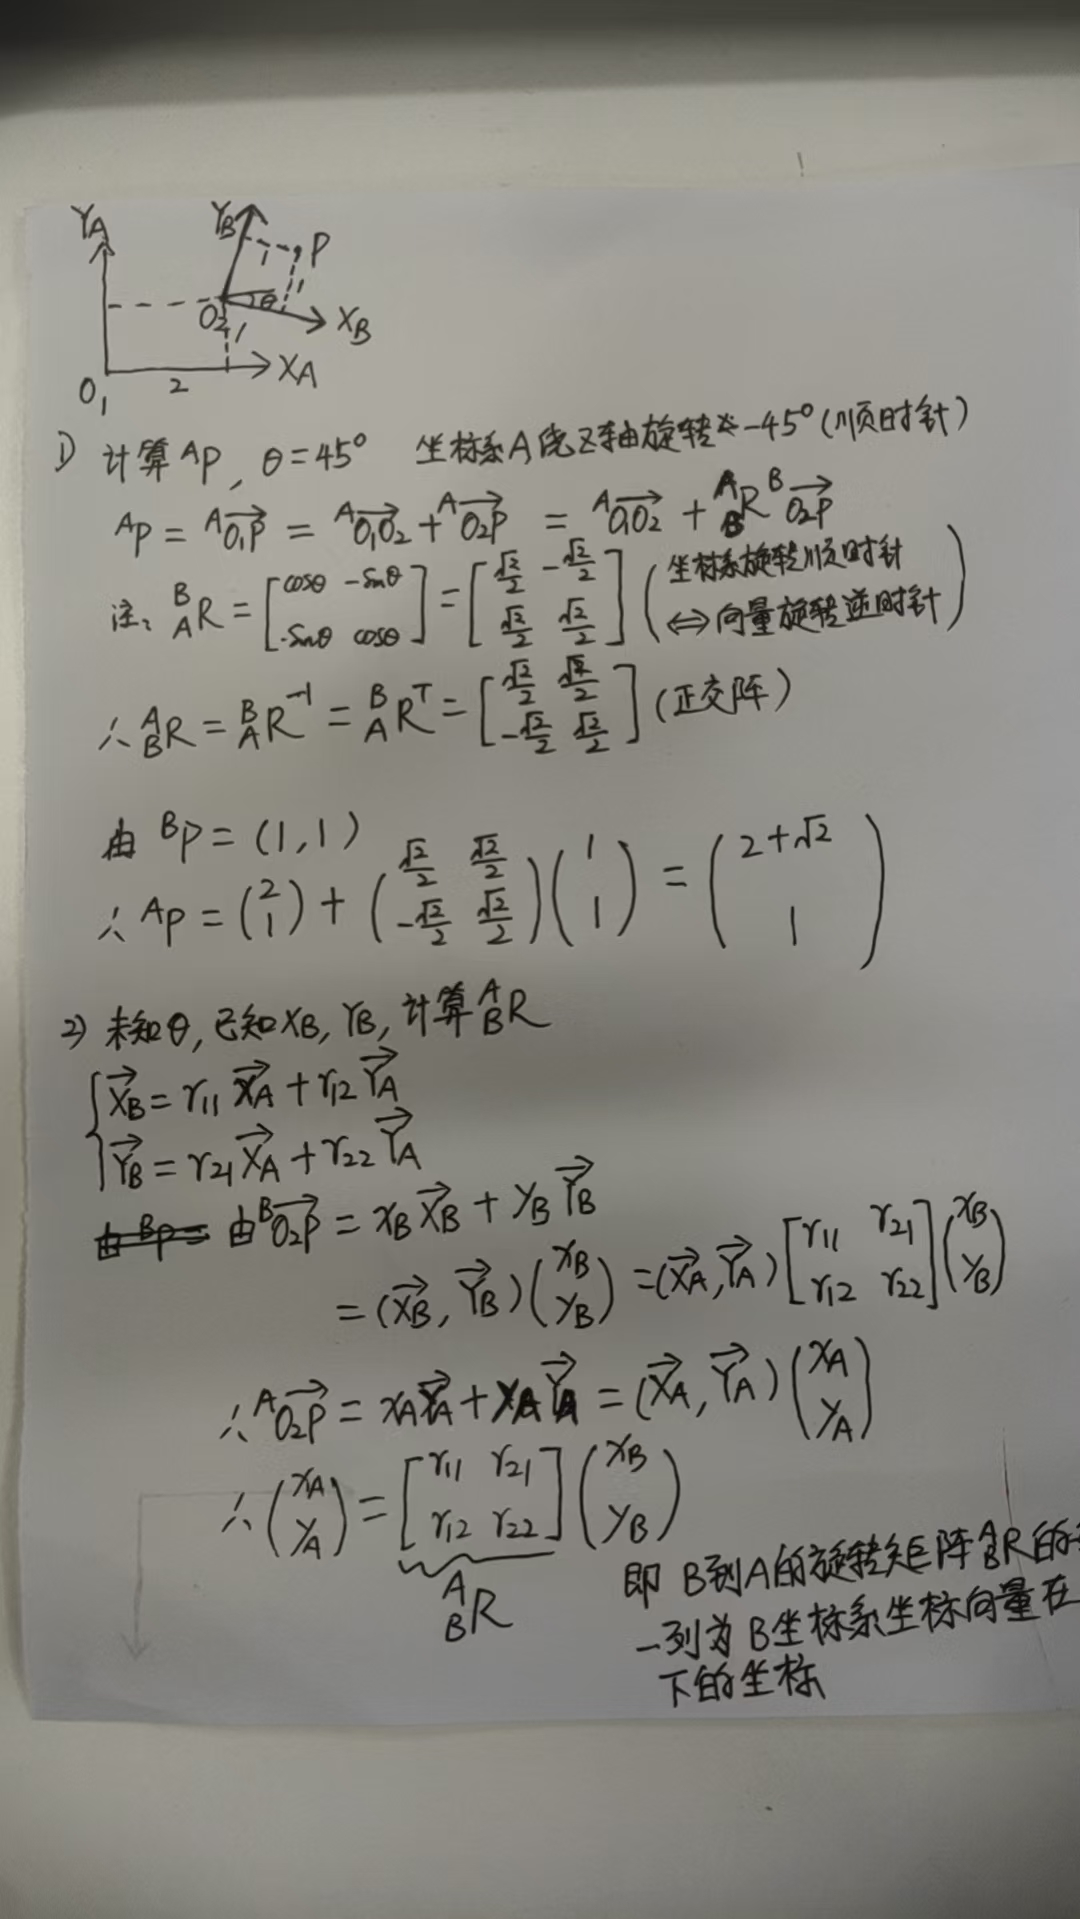 Y_A Y_B P
1 1
O_2 θ X_B
1
O_1 2 X_A
1) 计算 ^AP, θ=45° 坐标系A绕Z轴旋转 -45°(顺时针)
^AP = ^A\overrightarrow{O_1P} = ^A\overrightarrow{O_1O_2} + ^A\overrightarrow{O_2P} = ^A\overrightarrow{O_1O_2} + ^A_BR ^B\overrightarrow{O_2P}
注: ^B_AR = [cosθ -sinθ; -sinθ cosθ] = [√2/2 -√2/2; √2/2 √2/2] (坐标系旋转顺时针 ⇔ 向量旋转逆时针)
∴ ^A_BR = ^B_AR^{-1} = ^B_AR^T = [√2/2 √2/2; -√2/2 √2/2] (正交阵)
由 ^BP = (1,1)
∴ ^AP = (2; 1) + (√2/2 √2/2; -√2/2 √2/2)(1; 1) = (2+√2; 1)
2) 未知θ, 已知X_B, Y_B, 计算 ^A_BR
\overrightarrow{X_B} = r_11 \overrightarrow{X_A} + r_12 \overrightarrow{Y_A}
\overrightarrow{Y_B} = r_21 \overrightarrow{X_A} + r_22 \overrightarrow{Y_A}
由 ^BP = 由 ^B\overrightarrow{O_2P} = x_B \overrightarrow{X_B} + y_B \overrightarrow{Y_B}
= (\overrightarrow{X_B}, \overrightarrow{Y_B})(x_B; y_B) = (\overrightarrow{X_A}, \overrightarrow{Y_A})[r_11 r_21; r_12 r_22](x_B; y_B)
∴ ^A\overrightarrow{O_2P} = x_A \overrightarrow{X_A} + y_A \overrightarrow{Y_A} = (\overrightarrow{X_A}, \overrightarrow{Y_A})(x_A; y_A)
∴ (x_A; y_A) = [r_11 r_21; r_12 r_22](x_B; y_B)
^A_BR
即 B到A的旋转矩阵 ^A_BR 的
一列为B坐标系坐标向量在
下的坐标